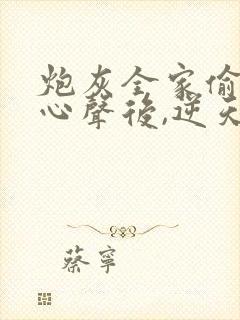 炮灰全家偷
心聲後,逆天
蔡寧